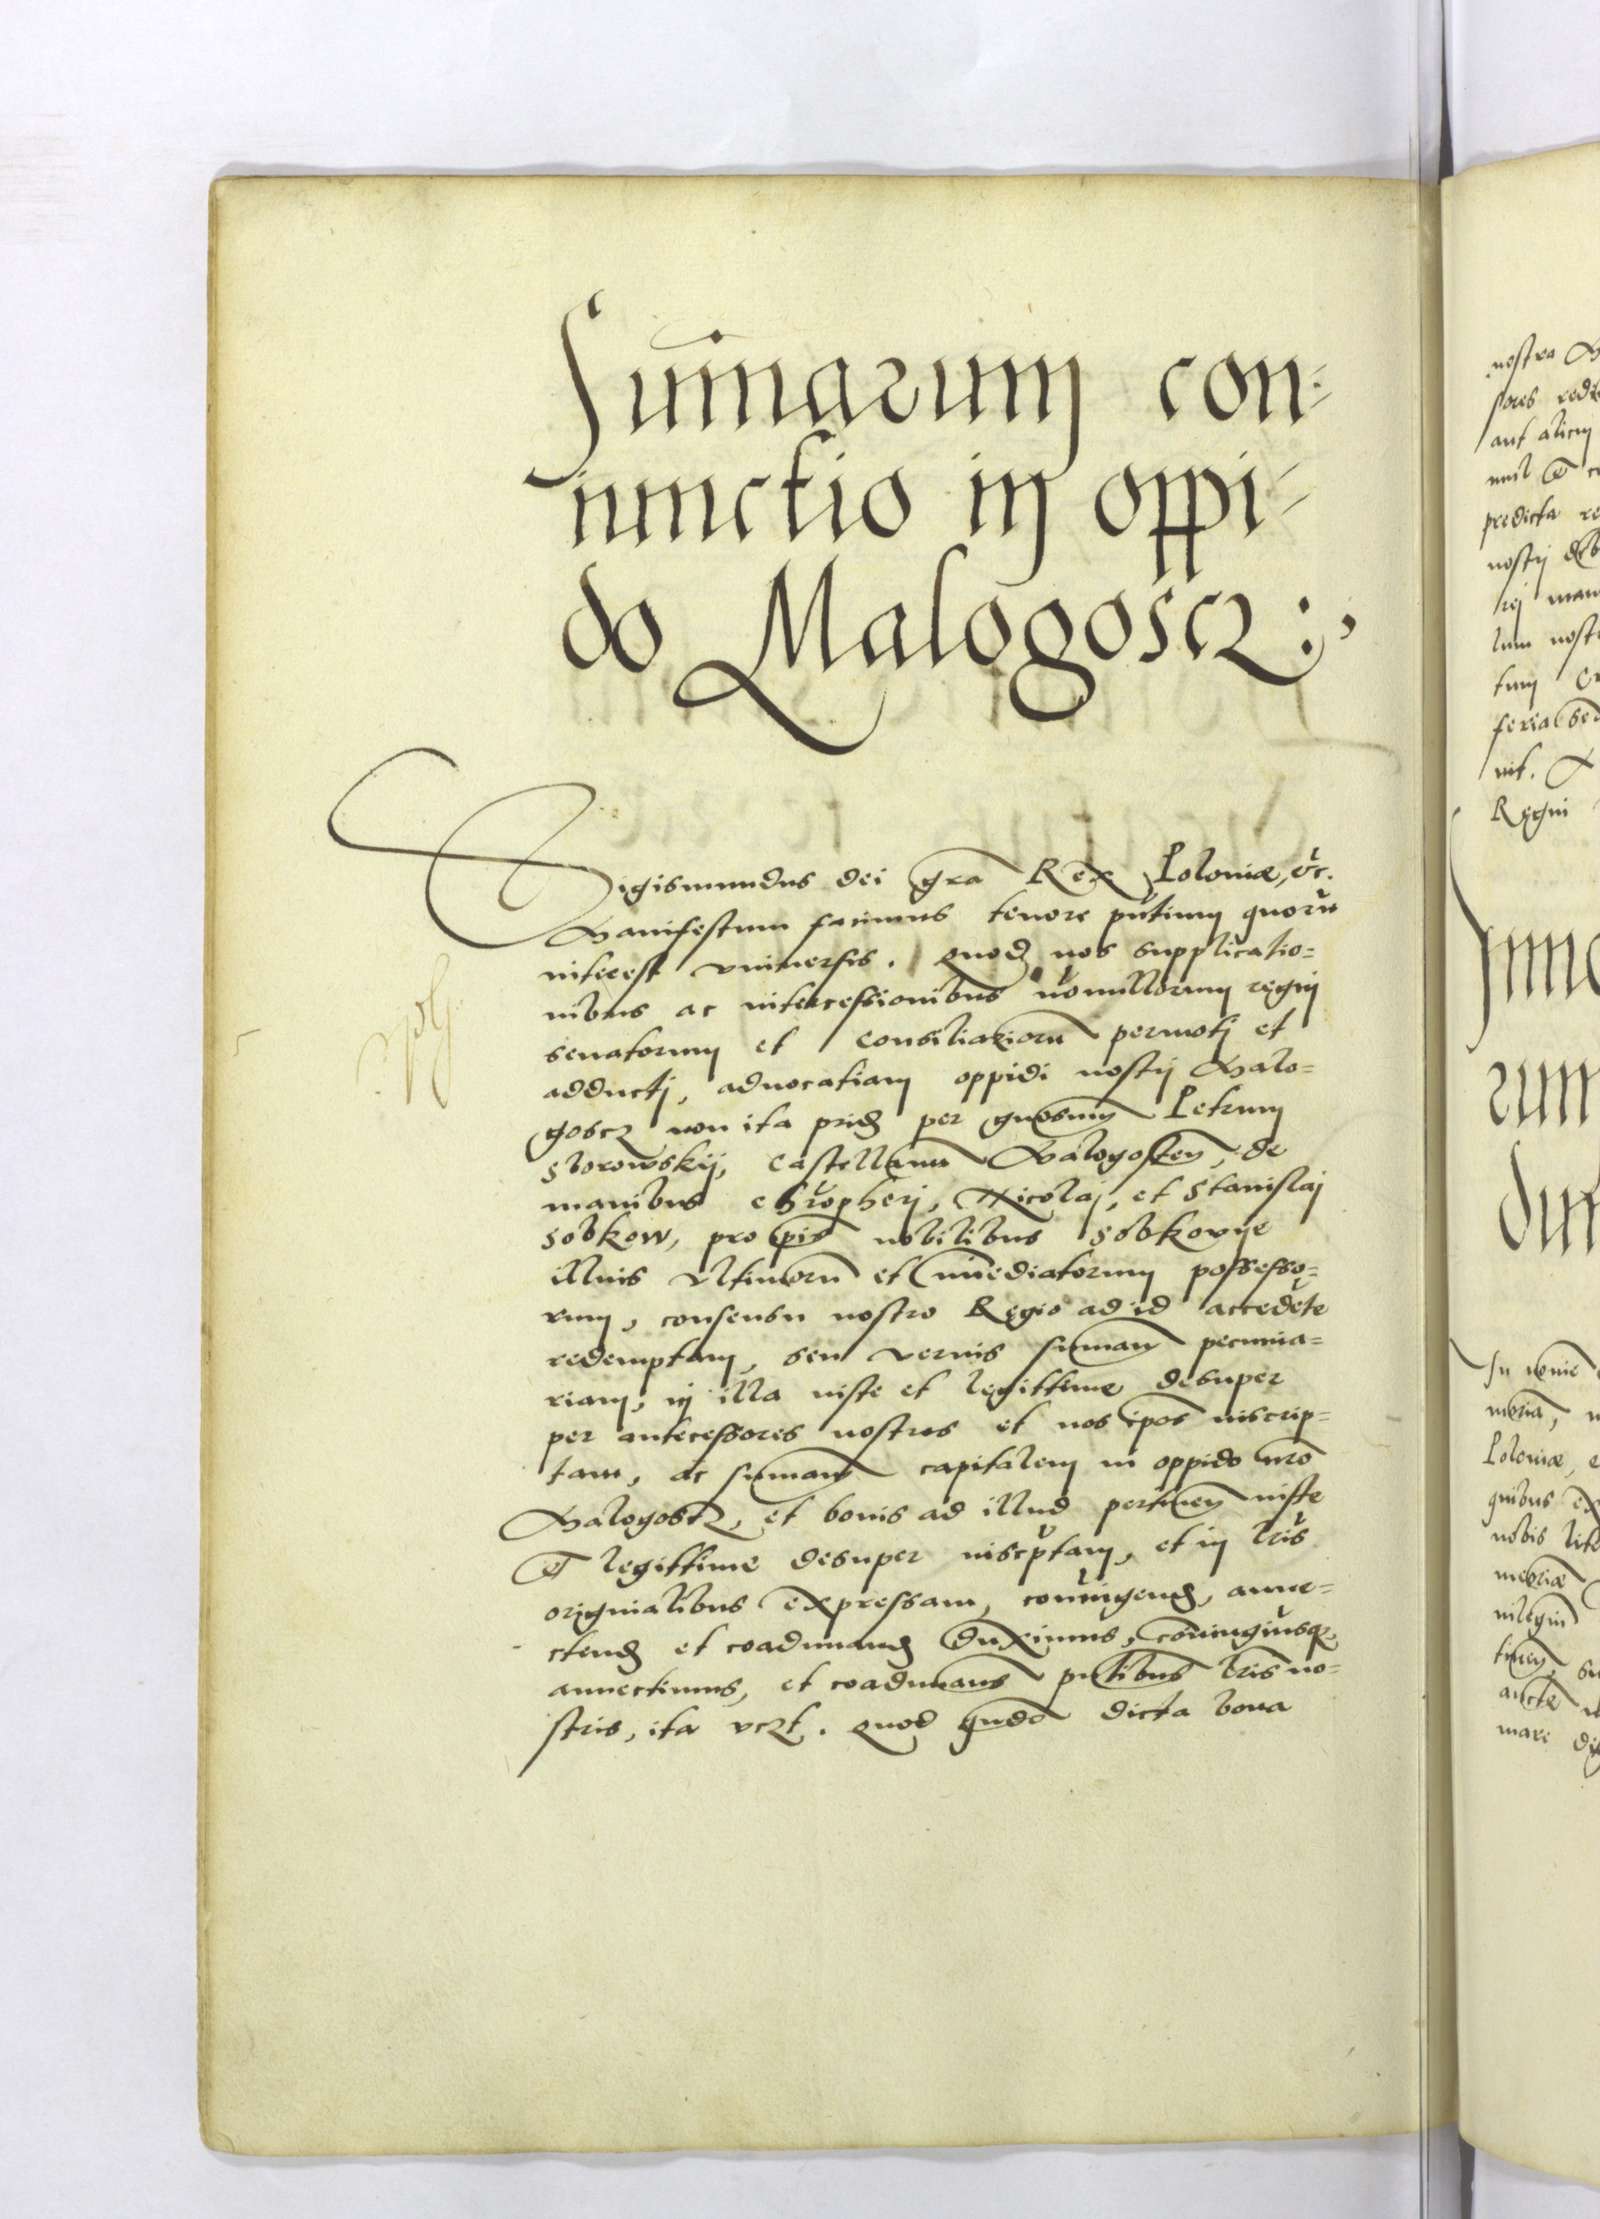 Sum̄arum con-
iunctio in oppi-
do Malogoscz:
Sigismundus dei gra Rex Poloniæ, &c.
Manifestum facimus tenore pntium quorū
interest vniuersis. Quod nos supplicatio=
nibus ac intercessionibus nōnullorum regni
senatorum et consiliariorū permoti et
adducti, aduocatiam oppidi nostri Malo=
goscz non ita prid per gnosum Petrum
Sborowskij, Castellanū Malogosten, de
manibus Chrophori, Nicolai, et Stanislai
Sobkow, pro pis nobilibus Sobkowye
illius vltimorū et im̄ediatorum possesso=
rum, consensu nostro Regio ad id accedēte
redemptam, seu verius sum̄am pecunia=
riam, in illa iuste et legittime desuper
per antecessores nostros et nos ipos inscrip=
tam, ac sum̄am capitalem in oppido nro
Malogoscz, et bonis ad illud pertinen iuste
et legittime desuper inscptam, et in lris
originalibus expressam, coniungend, anne=
ctend et coadunand duximus, coniungimusq
annectimus, et coadunamus pntibus lris no=
stris, ita vczt. Quod quādo dicta bona
nostra
sores
aut alicui
predicta re
nostri
lum nostr
tum
feria
nit.
Regni
In nomie
moria,
Poloniæ, e
quibus ex
nobis lite
memoriæ
mare